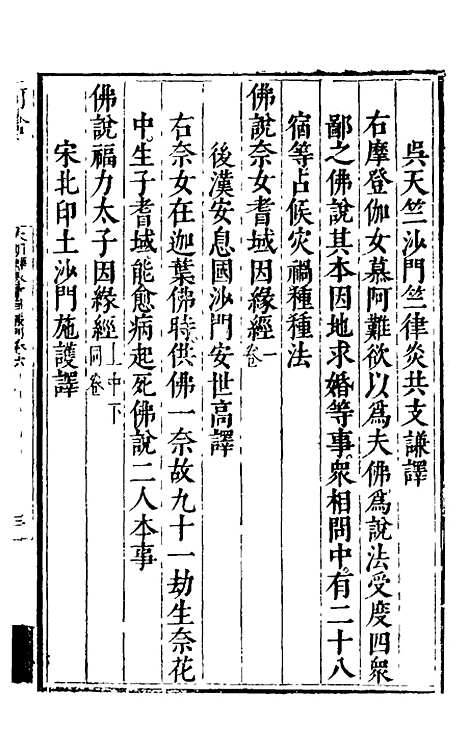 吳天竺沙門竺律炎共支謙譯
右摩登伽女慕阿難欲以爲夫佛爲說法受度四衆
鄙之佛說其本因地求婚等事衆相問中有二十八
宿等占候灾禍種種法
佛說奈女耆域因緣經一卷
後漢安息國沙門安世高譯
右奈女在迦葉佛時供佛一奈故九十一劫生奈花
中生子耆域能愈病起死佛說二人本事
佛說福力太子因緣經上中下同卷
宋北印土沙門施護譯
三